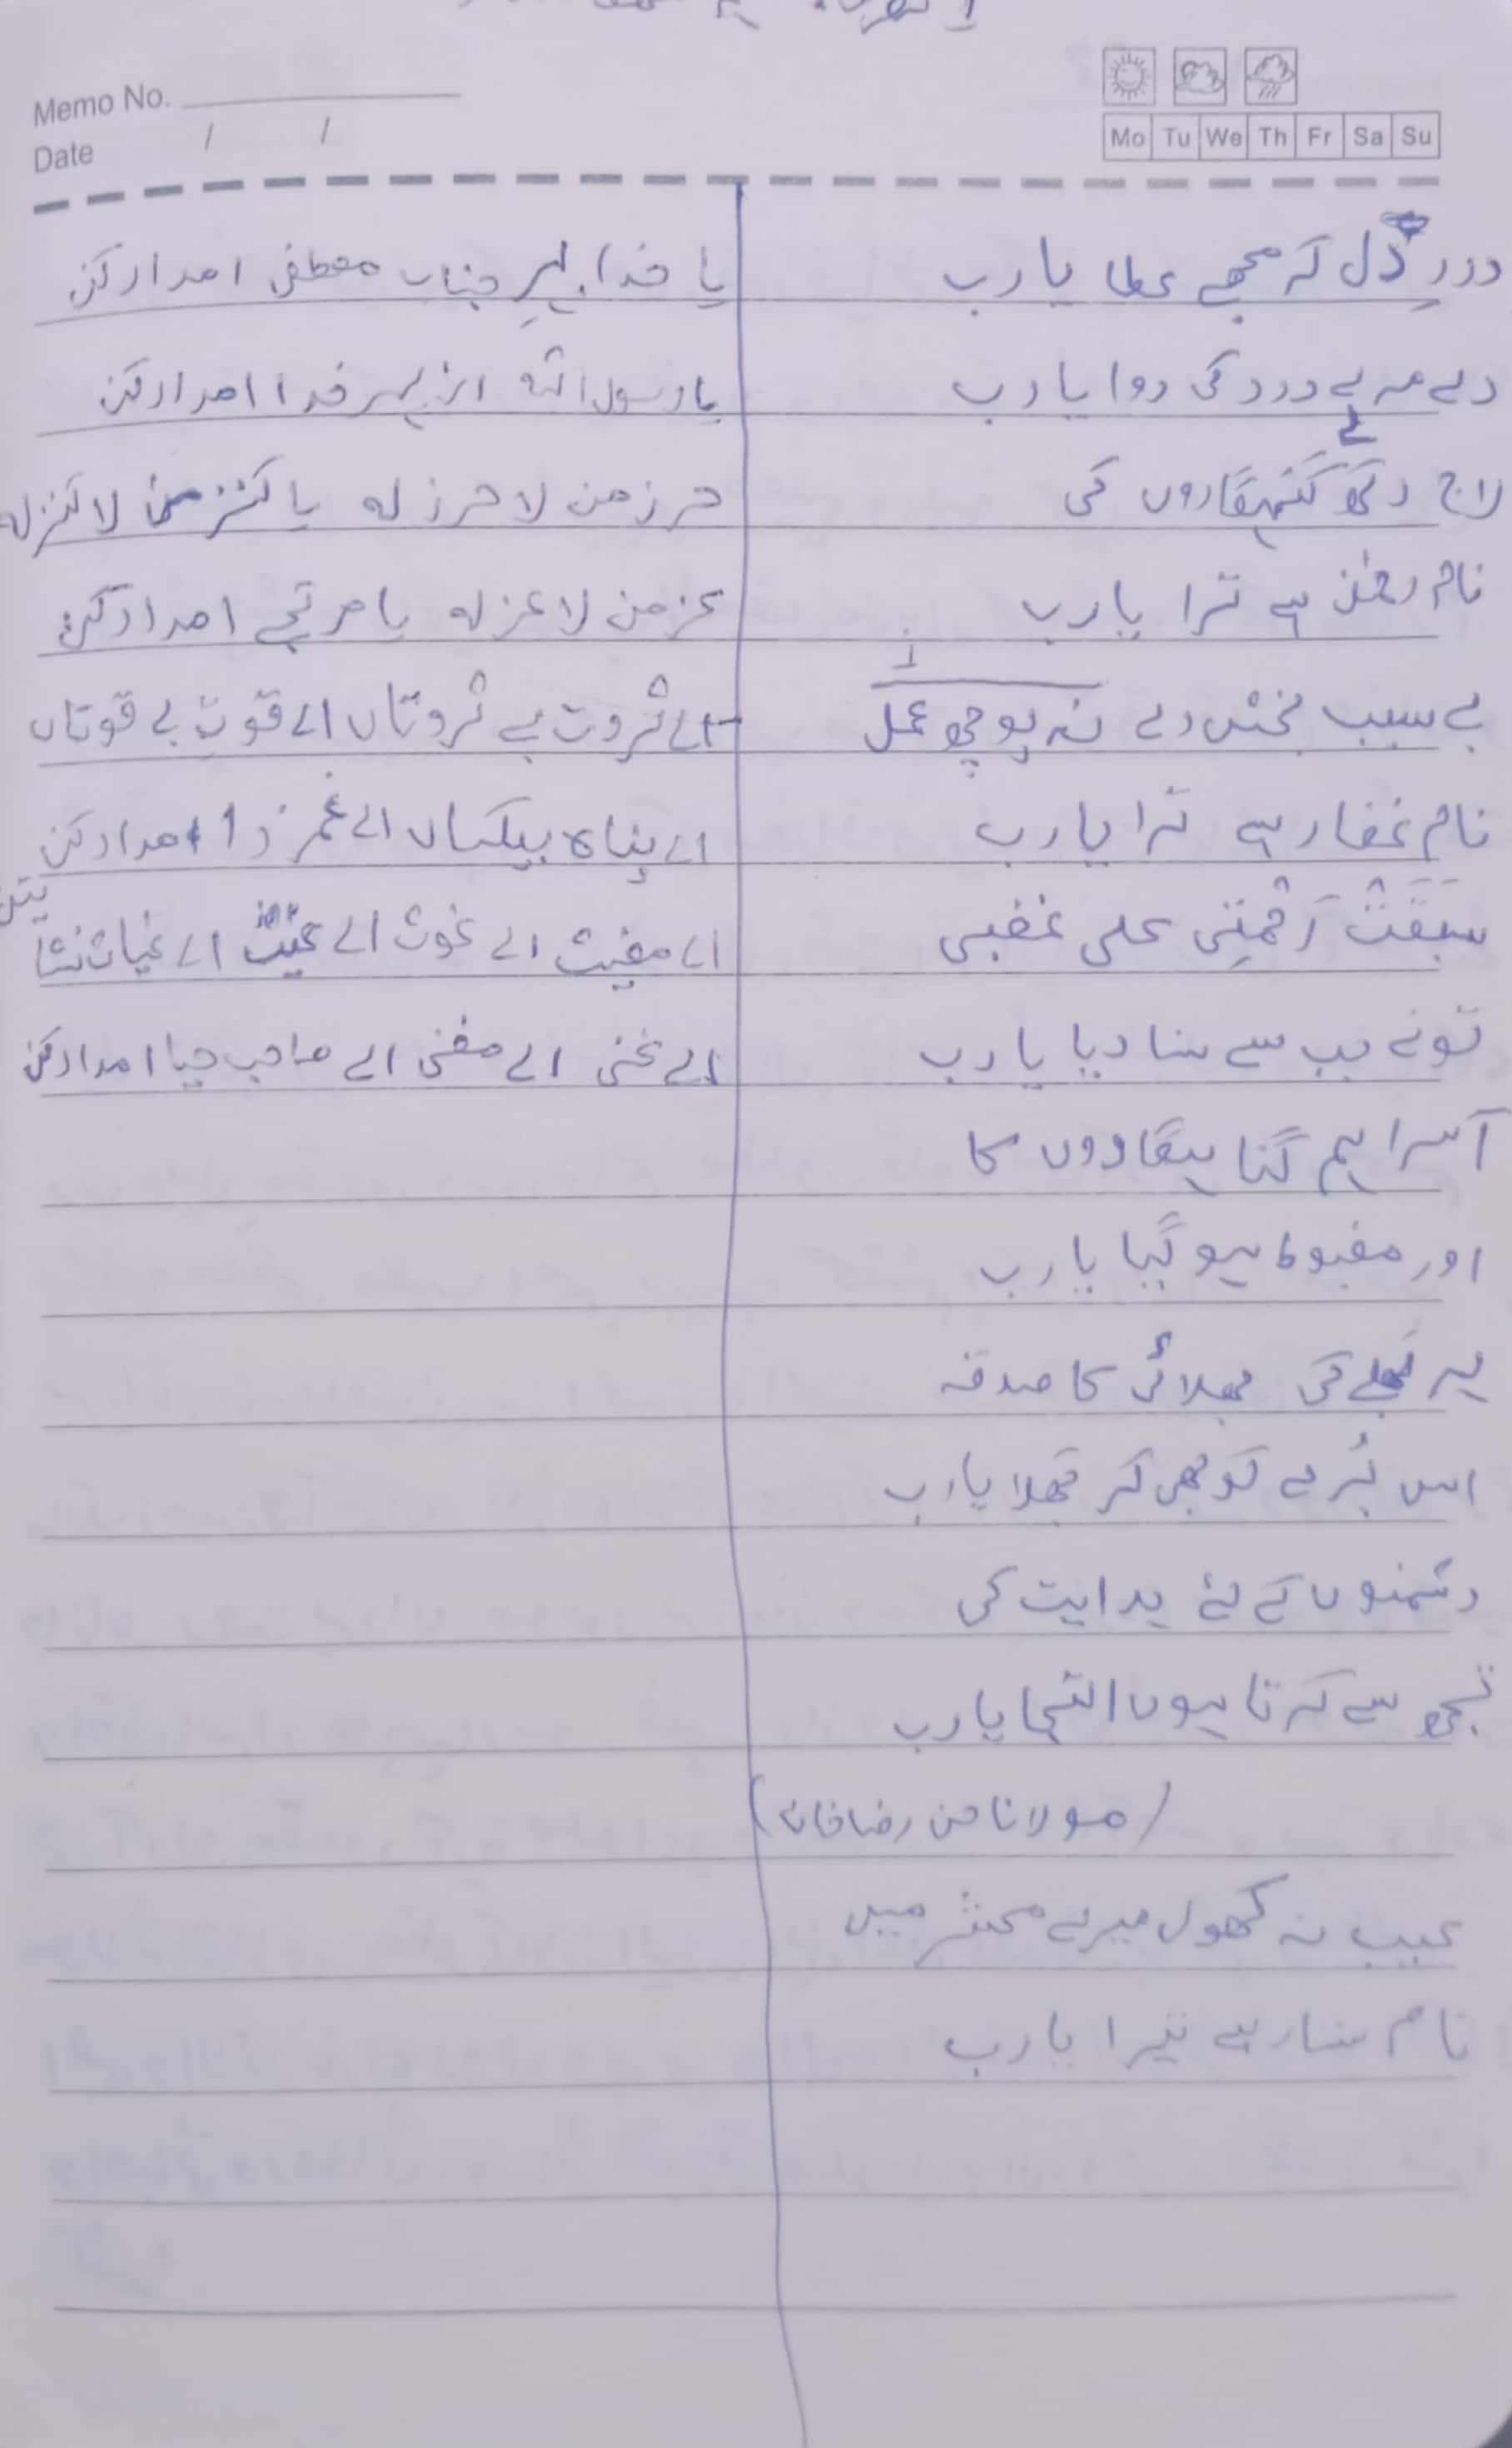 Memo No.
Date / /
Mo Tu We Th Fr Sa Su
دردِ دل کر مجھے عطا یا رب
دے مرے درد کی دوا یا رب
لاج رکھ لے گنہگاروں کی
نام رحمٰن ہے ترا یا رب
بے سبب بخش دے نہ پوچھ عمل
نام غفار ہے ترا یا رب
سَبَقَتْ رَحْمَتِی علی غضبی
تونے جب سے سنا دیا یا رب
آسرا ہم گناہیگاروں کا
اور مضبوط ہو گیا یا رب
ہر بھلے کی بھلائی کا صدقہ
اس بُرے کو بھی کر بھلا یا رب
دشمنوں کے لئے ہدایت کی
تجھ سے کرتا ہوں التجا یا رب
(مولانا حسن رضا خان)
عیب نہ کھول میرے محشر میں
نام ستار ہے تیرا یا رب
یا خدا بہرِ جناب مصطفی امداد کن
یا رسول اللہ از بہر خدا امداد کن
حرز من لا حرز لہ یا کنز من لا کنز لہ
عز من لا عز لہ یا مرتجے امداد کن
اے ثروت بے ثروتاں اے قوتِ بے قوتاں
اے پناہ بیکساں اے غمزدا امداد کن
اے مغیث اے غوث اے غیث اے غیاث نشأتین
اے غنی اے مغنی اے صاحب حیا امداد کن